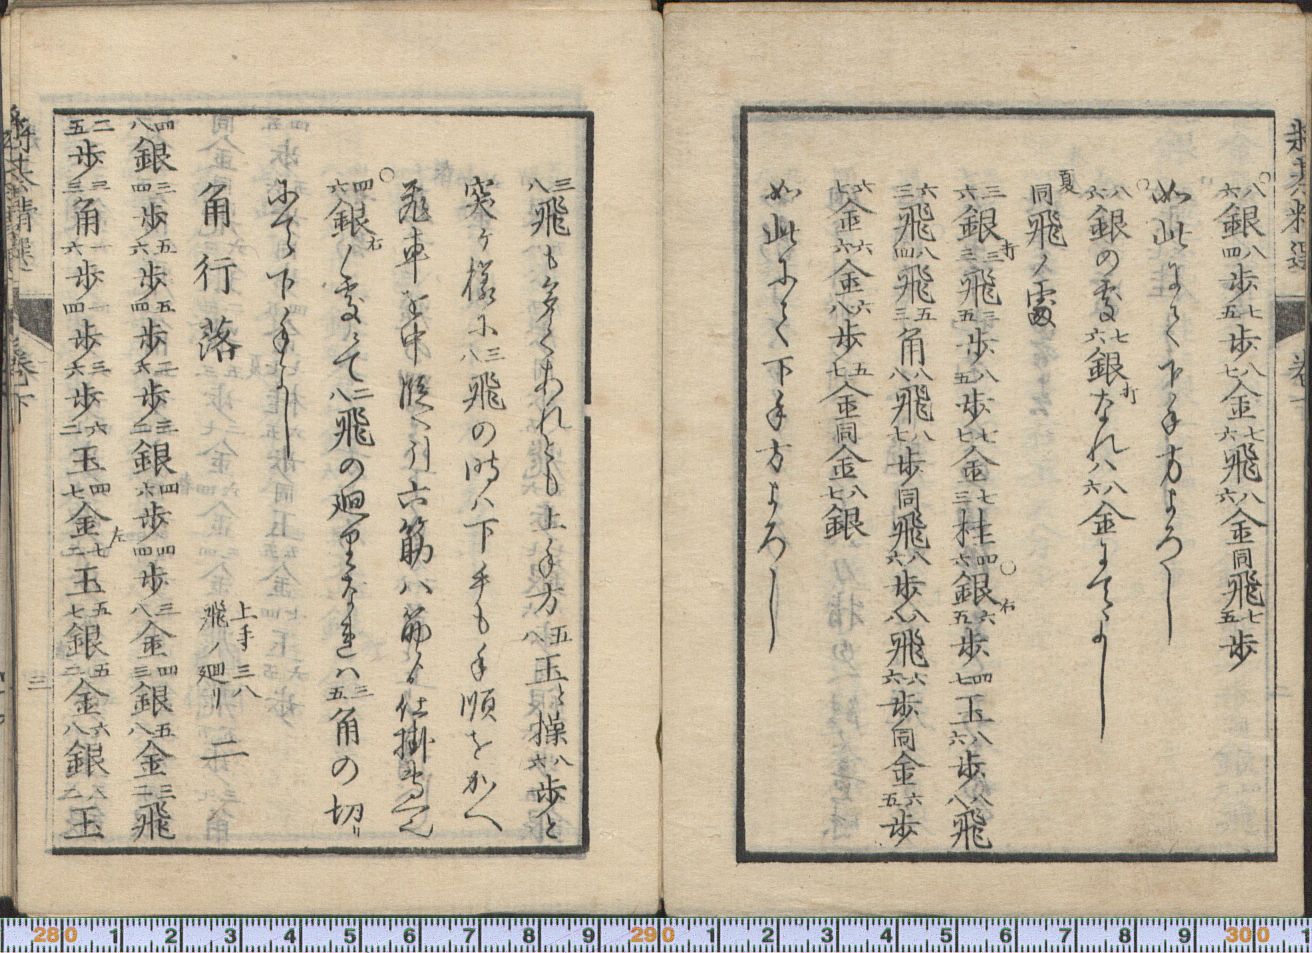 八六銀八四歩七五歩八七金七六飛八六金同飛七五歩
如此にて下手方よろし
八六銀の処七六銀打なれハ八六金にてよし
同飛ノ変
三六銀打三三飛三五歩八五歩七七金七三桂四六銀右六五歩四七玉八六歩八八飛
六三飛八四飛五三角八八飛八七歩同飛八六歩八八飛六六歩同金六五歩
六七金六六金六八歩五七金同金八七銀
如此にて下手方よろし
三八飛も多くあれとも上手方五八玉と操八六歩と
突ヶ様に三八飛の時ハ下手も手順をかへ
飛車を中段へ引六筋八筋より仕掛
四六銀右ノ処にて二八飛の廻りなれハ三五角の切リ
にて下手よし
角行落
上手三八
飛ノ廻リ
二
四八銀三四歩五六歩五四歩二六歩三二銀四六歩四四歩三八金四三銀五八金三二飛
二五歩三三角一六歩一四歩三六歩六二玉四七金左七二玉五七銀五二金六八銀八二玉
将棊精選
巻下
三